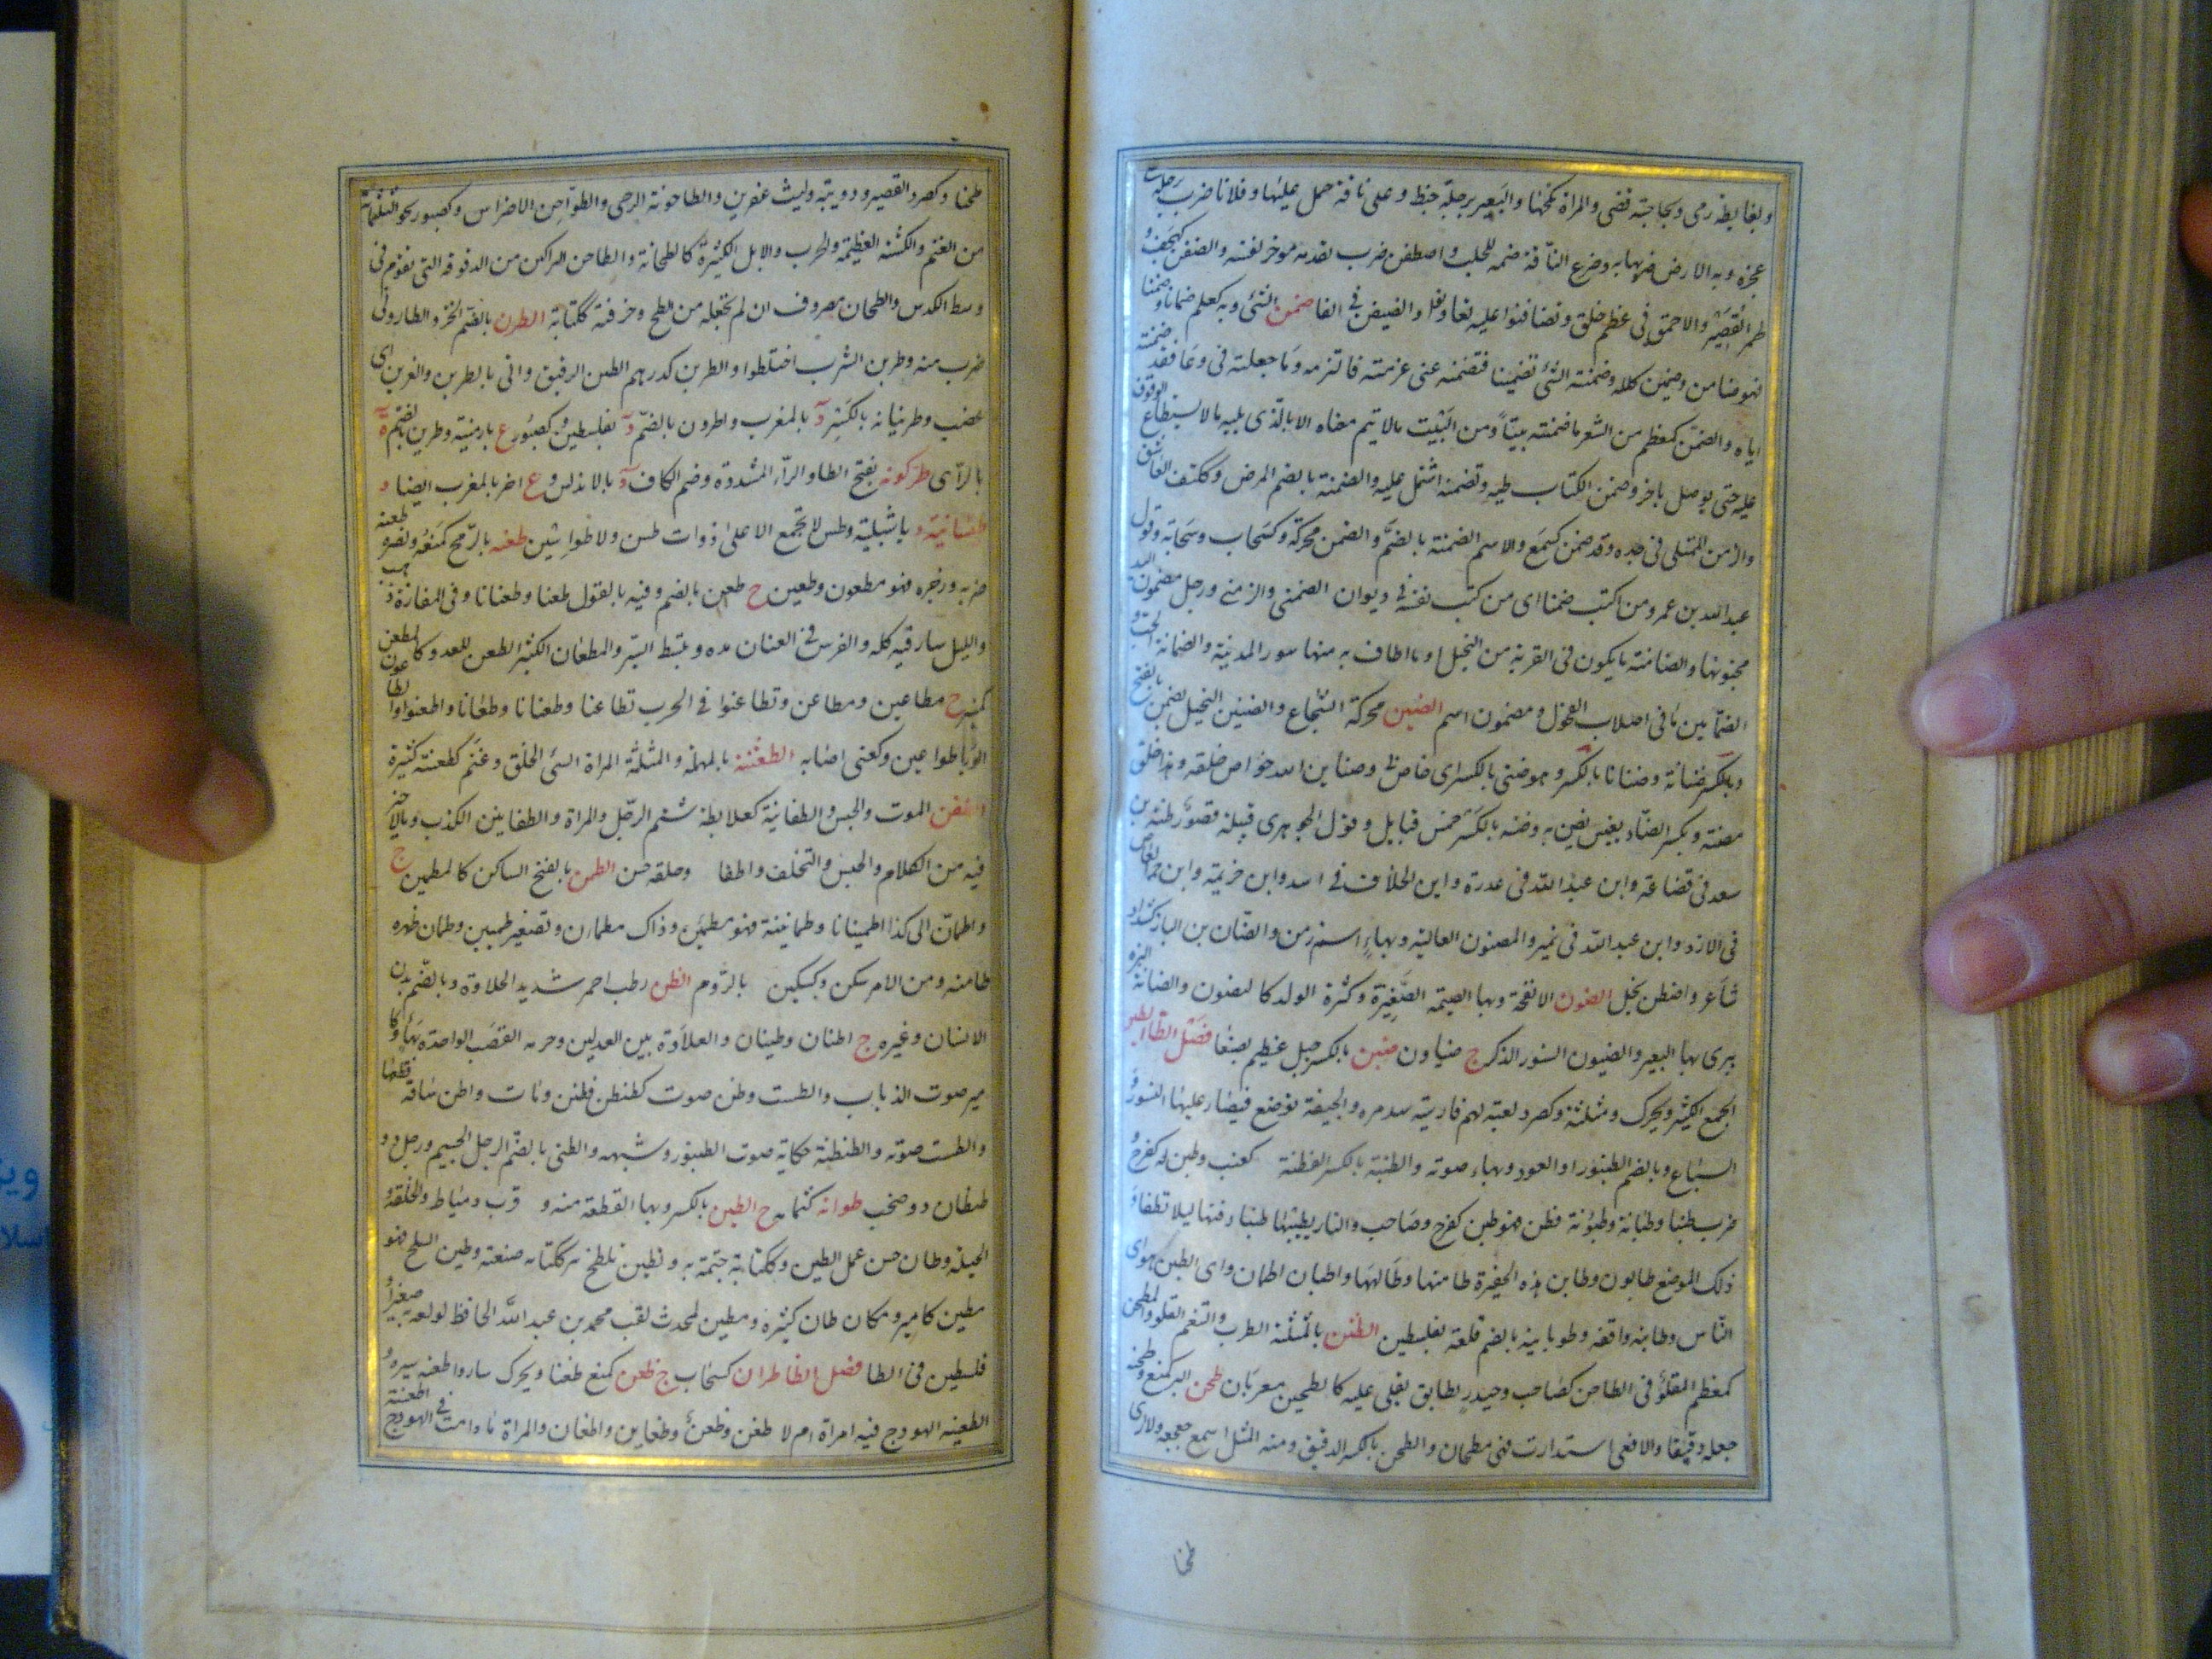 وبغايطه رمى وبحاجته قضى والمراة نكحها والبعير برجله خبط وعلى ناقة حمل عليها وفلانا ضرب برجله
عجزه وبه الارض ضربها به وضرع الناقة ضمه للحلب واضطفن ضرب بقدمه موخر نفسه والضفن كهجف و
طمر القصير والاحمق في عظم خلق وتضافنوا عليه تعاونوا ضمن الشئ وبه كعلم ضمانا وضمنا
فهو ضامن وضمين كفله وضمنته الشئ تضمينا فتضمنه عني غرمته فالتزمه وما جعلته في وعا فقد ضمنته
اياه والضمن كمعظم من الشعر ما ضمنته بيتا ومن البيت ما لا يتم معناه الا بالذي يليه ما لا يستطاع الوقوف
عليه حتى يوصل باخر وضمن الكتاب طيه وتضمنه اشتمل عليه والضمنة بالضم المرض وككتف العاشق
والزمن المبتلى في جسده وقد ضمن كسمع والاسم الضمنة بالضم والضمن محركة وكسحاب وسحابة وقول
عبد الله بن عمرو من اكتتب ضمنا اي من كتب نفسه في ديوان الضمنى والزمنى ورجل مضمون اليد
مخبونها والضامنة ما يكون في القرية من النخيل او ما اطاف به منها سور المدينة والضمانة الحب و
المضامين ما في اصلاب الفحول ومضمون اسم الضنين محركة الشجاع والضنين البخيل يضن بالفتح
وبالكسر ضنانة وضنا بالكسر وهو ضني بالكسر اي خاص بي وضناين الله خواص خلقه وهذا علق
مضنة وبكسر الضاد نفيس يضن به وضنه بالكسر خمس قبايل وقول الجوهري قبيلة قصور ضنه بن
سعد في قضاعة وابن عبد الله في عذرة وابن الحلاف في اسد وابن خزيمة وابن العاص
في الازد وابن عبد الله في نمير والمضنون الغالية وبهاء اسم زمزم والضنان بن المبارك كشداد
شاعر واضطن بخل الضون الانفحة وبها الصبية الصغيرة وكثرة الولد كالتضون والضانة البرة
يبرى بها البعير والضيون السنور الذكر ج ضياون ضين بالكسر جبل عظيم بصنعا فصل الطا الطبن
الجمع الكثير ويحرك ومثلثة وكصرد لعبة لهم فارسيته سدره والجيفة توضع فيصاد عليها النسور و
السباع وبالضم الطنبور او العود وبهاء صوته والطبنة بالكسر الفطنة كعنب وطبن له كفرح و
ضرب طبنا وطبانة وطبونة فطن فهو طبن كفرح وصاحب والنار يطبنها طبنا دفنها ليلا تطفا و
ذلك الموضع طابون وطابن هذه الحفيرة طامنها وطاطاها واطبان اطمان واي الطبن هو اي
الناس وطابنه واقفه وطوبانية بالضم قلعة بفلسطين الطثن بالمثلثة الطرب والتنعم القلو والمطجن
كمعظم المقلو في الطاجن كصاحب وحيدر لطابق يقلى عليه كالطيجن معربان طحن البر كمنع وطحنه
جعله دقيقا والافعى استدارت فهي مطحان والطحن بالكسر الدقيق ومنه المثل اسمع جعجعة ولا ارى
طحنا
طحنا وكصرد القصير ودويبة وليث عفرين والطاحونة الرحى والطواحن الاضراس وكصبور نحو الثلثماية
من الغنم والكتيبة العظيمة والحرب والابل الكثيرة كالطحانة والطاحن الراكس من الدقوقة التي تقوم في
وسط الكدس والطحان مصروف ان لم تجعله من الطح وحرفته ككتابة الطرن بالضم الخز والطاروني
ضرب منه وطرين الشرب اختلطوا والطرين كدرهم الطين الرقيق واتى بالطرين والغرين اي
غضب وطريانة بالكسر د بالمغرب واطرون بالضم د بفلسطين وكصبور ع بارمينية وطرين بالضم ة
بالري طركونة بفتح الطا والراء المشددة وضم الكاف د بالاندلس وع اخر بالمغرب ايضا و
طشانية د باشبيلية وطس لا تجمع الا على ذوات طس ولا طواسين طعنه بالرمح كمنعه ونصره طعنه
ضربه وزجره فهو مطعون وطعين ج طعن بالضم وفيه بالقول طعنا وطعنانا وفي المفازة ذهب
والليل سار فيه كله والفرس في العنان مده وتبسط السير والمطعان الكثير الطعن للعدو كالمطعن
كمنبر ج مطاعين ومطاعن وتطاعنوا في الحرب تطاعنا وطعنانا وطعانا واطعنوا والطاعون
الوبا طواعين وكعنى اصابه الطعثنة بالمهملة والمثلثة المراة السئ الخلق وغنم كطعنة كثيرة
الطفن الموت والحبس والطفانية كعلابطة شتم الرجل والمراة والطفانين الكذب وما لا خير
فيه من الكلام والحبس والتخلف واطفا وخلقه حسن الطمن بالفتح الساكن كالمطمئن ج
واطمان الى كذا اطمينانا وطمانينة فهو مطمئن وذاك مطمان وتصغير طميئن وطمان ظهره
طامنه ومن الامر سكن وكسكين بالروم الطن رطب احمر شديد الحلاوة وبالضم بدن
الانسان وغيره ج اطنان وطنان والعلاوة بين العدلين وحزمه القصب الواحدة بهاء وكا
مير صوت الذباب والطست وطن صوت كطنطن وطنن ومات واطن ساقه قطعها
والطست صوته والطنطنة حكاية صوت الطنبور وشبهه والطنى بالضم الرجل الجسيم ورجل ذو
طنطان ذو صخب طوانه كثمامه ج الطين بالكسر وبها القطعة منه و قرب دمياط والخلقة
الجبلة وطان حسن عمل الطين وككتابة ختمه به وتطين تلطخ به ككتابه صنعة وطين السطح فهو
مطين كامير ومكان طان كثيره ومطين لمحدث لقب محمد بن عبد الله الحافظ لولعه به صغيرا و
فلسطين في الطا فصل الظا ظران كسحاب ج ظعن كمنع ظعنا ويحرك سار واظعنه سيره و
الظعينة الهودج فيه امراة ام لا ظعن وظعن وظعاين واظعان والمراة ما دامت في الهودج اظعنته